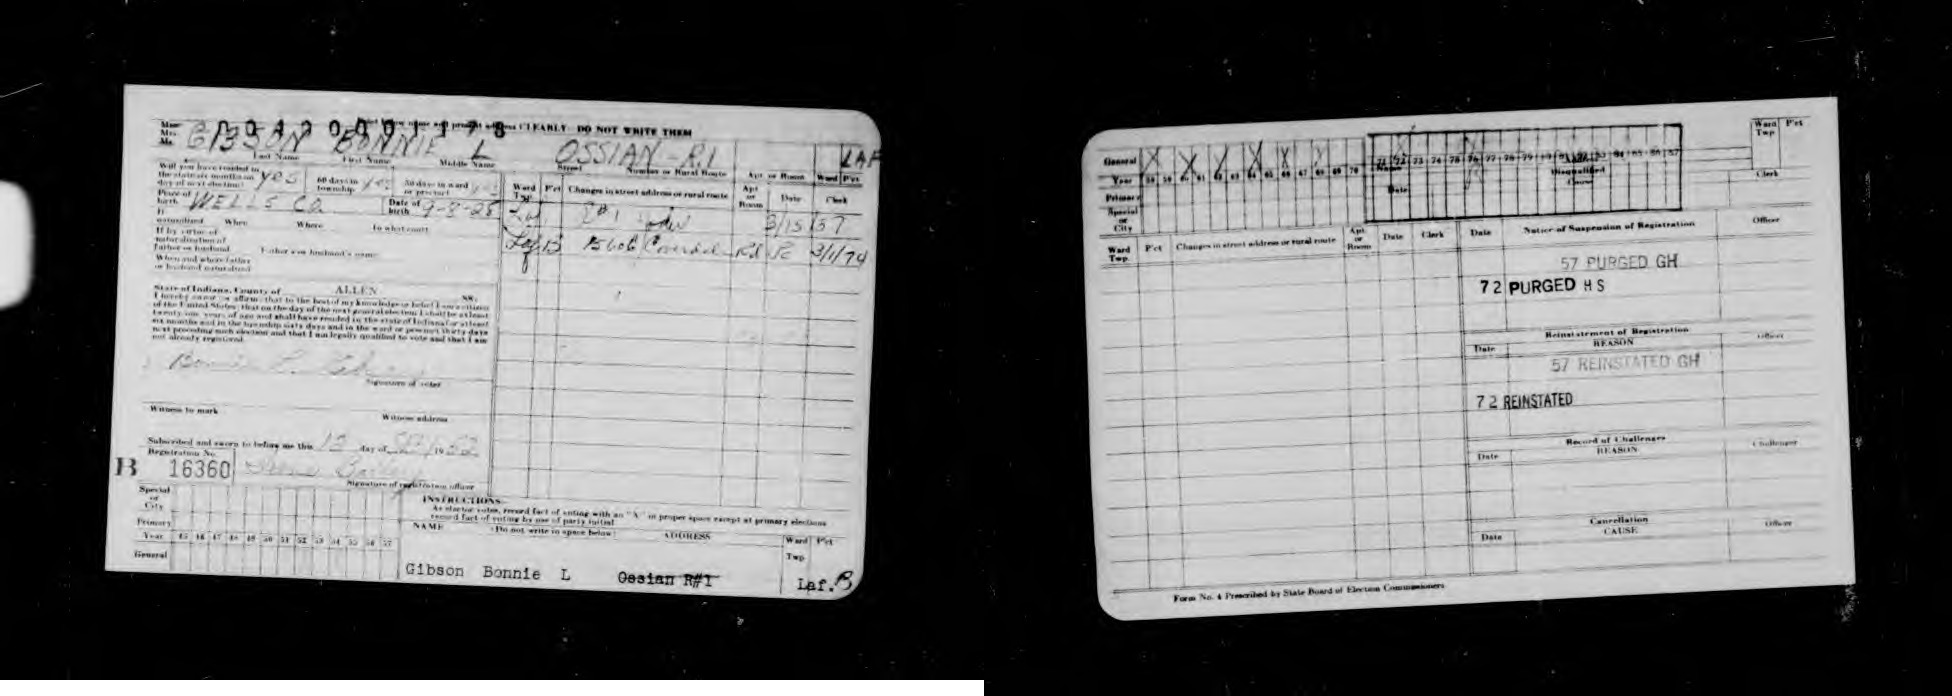 Miss
Mrs.
Mr.
00420001178
CLEARLY. DO NOT WRITE THEM
GIBSON BONNIE L OSSIAN-R.1 LAF
Last Name First Name Middle Name Street Number or Rural Route Apt or Room Ward P'ct
Will you have resided in the state six months on day of next election? yes 60 days in township yes 30 days in ward or precinct
Place of birth WELLS CO. Date of birth
If naturalized When Where In what court
If by virtue of naturalization of father or husband Father's or husband's name
When and where father or husband naturalized
Ward Twp. P'ct Changes in street address or rural route Apt or Room Date Clerk
3/15 57
Laf B 15606 Rd 3/1/74
State of Indiana, County of ALLEN SS:
I hereby swear or affirm that to the best of my knowledge or belief I am a citizen
of the United States; that on the day of the next general election I shall be at least
twenty-one years of age and shall have resided in the state of Indiana for at least
six months and in the township sixty days and in the ward or precinct thirty days
next preceding such election and that I am legally qualified to vote and that I am
not already registered.
Bonnie L. Gibson
Signature of voter
Witness to mark Witness address
Subscribed and sworn to before me this 13 day of 1952
Registration No.
B 16360 Irene Bailey
Signature of registration officer
Special or City
Primary
Year 45 46 47 48 49 50 51 52 53 54 55 56 57
General
INSTRUCTIONS
As elector votes, record fact of voting with an "X" in proper space except at primary elections
record fact of voting by use of party initial
NAME (Do not write in space below) ADDRESS Ward Twp. P'ct
Gibson Bonnie L Ossian R#1 Laf. B
General X X X X X X X
Year 58 59 60 61 62 63 64 65 66 67 68 69 70 71 72 73 74 75 76 77 78 79 80 81 82 83 84 85 86 87
Primary
Special or City
Name
Date
Disqualified
Cause
Ward Twp P'ct
Clerk
Ward Twp. P'ct Changes in street address or rural route Apt or Room Date Clerk
Date Notice of Suspension of Registration Officer
57 PURGED GH
72 PURGED HS
Reinstatement of Registration
Date REASON Officer
57 REINSTATED GH
72 REINSTATED
Record of Challenges
Date REASON Challenger
Cancellation
Date CAUSE Officer
Form No. 4 Prescribed by State Board of Election Commissioners